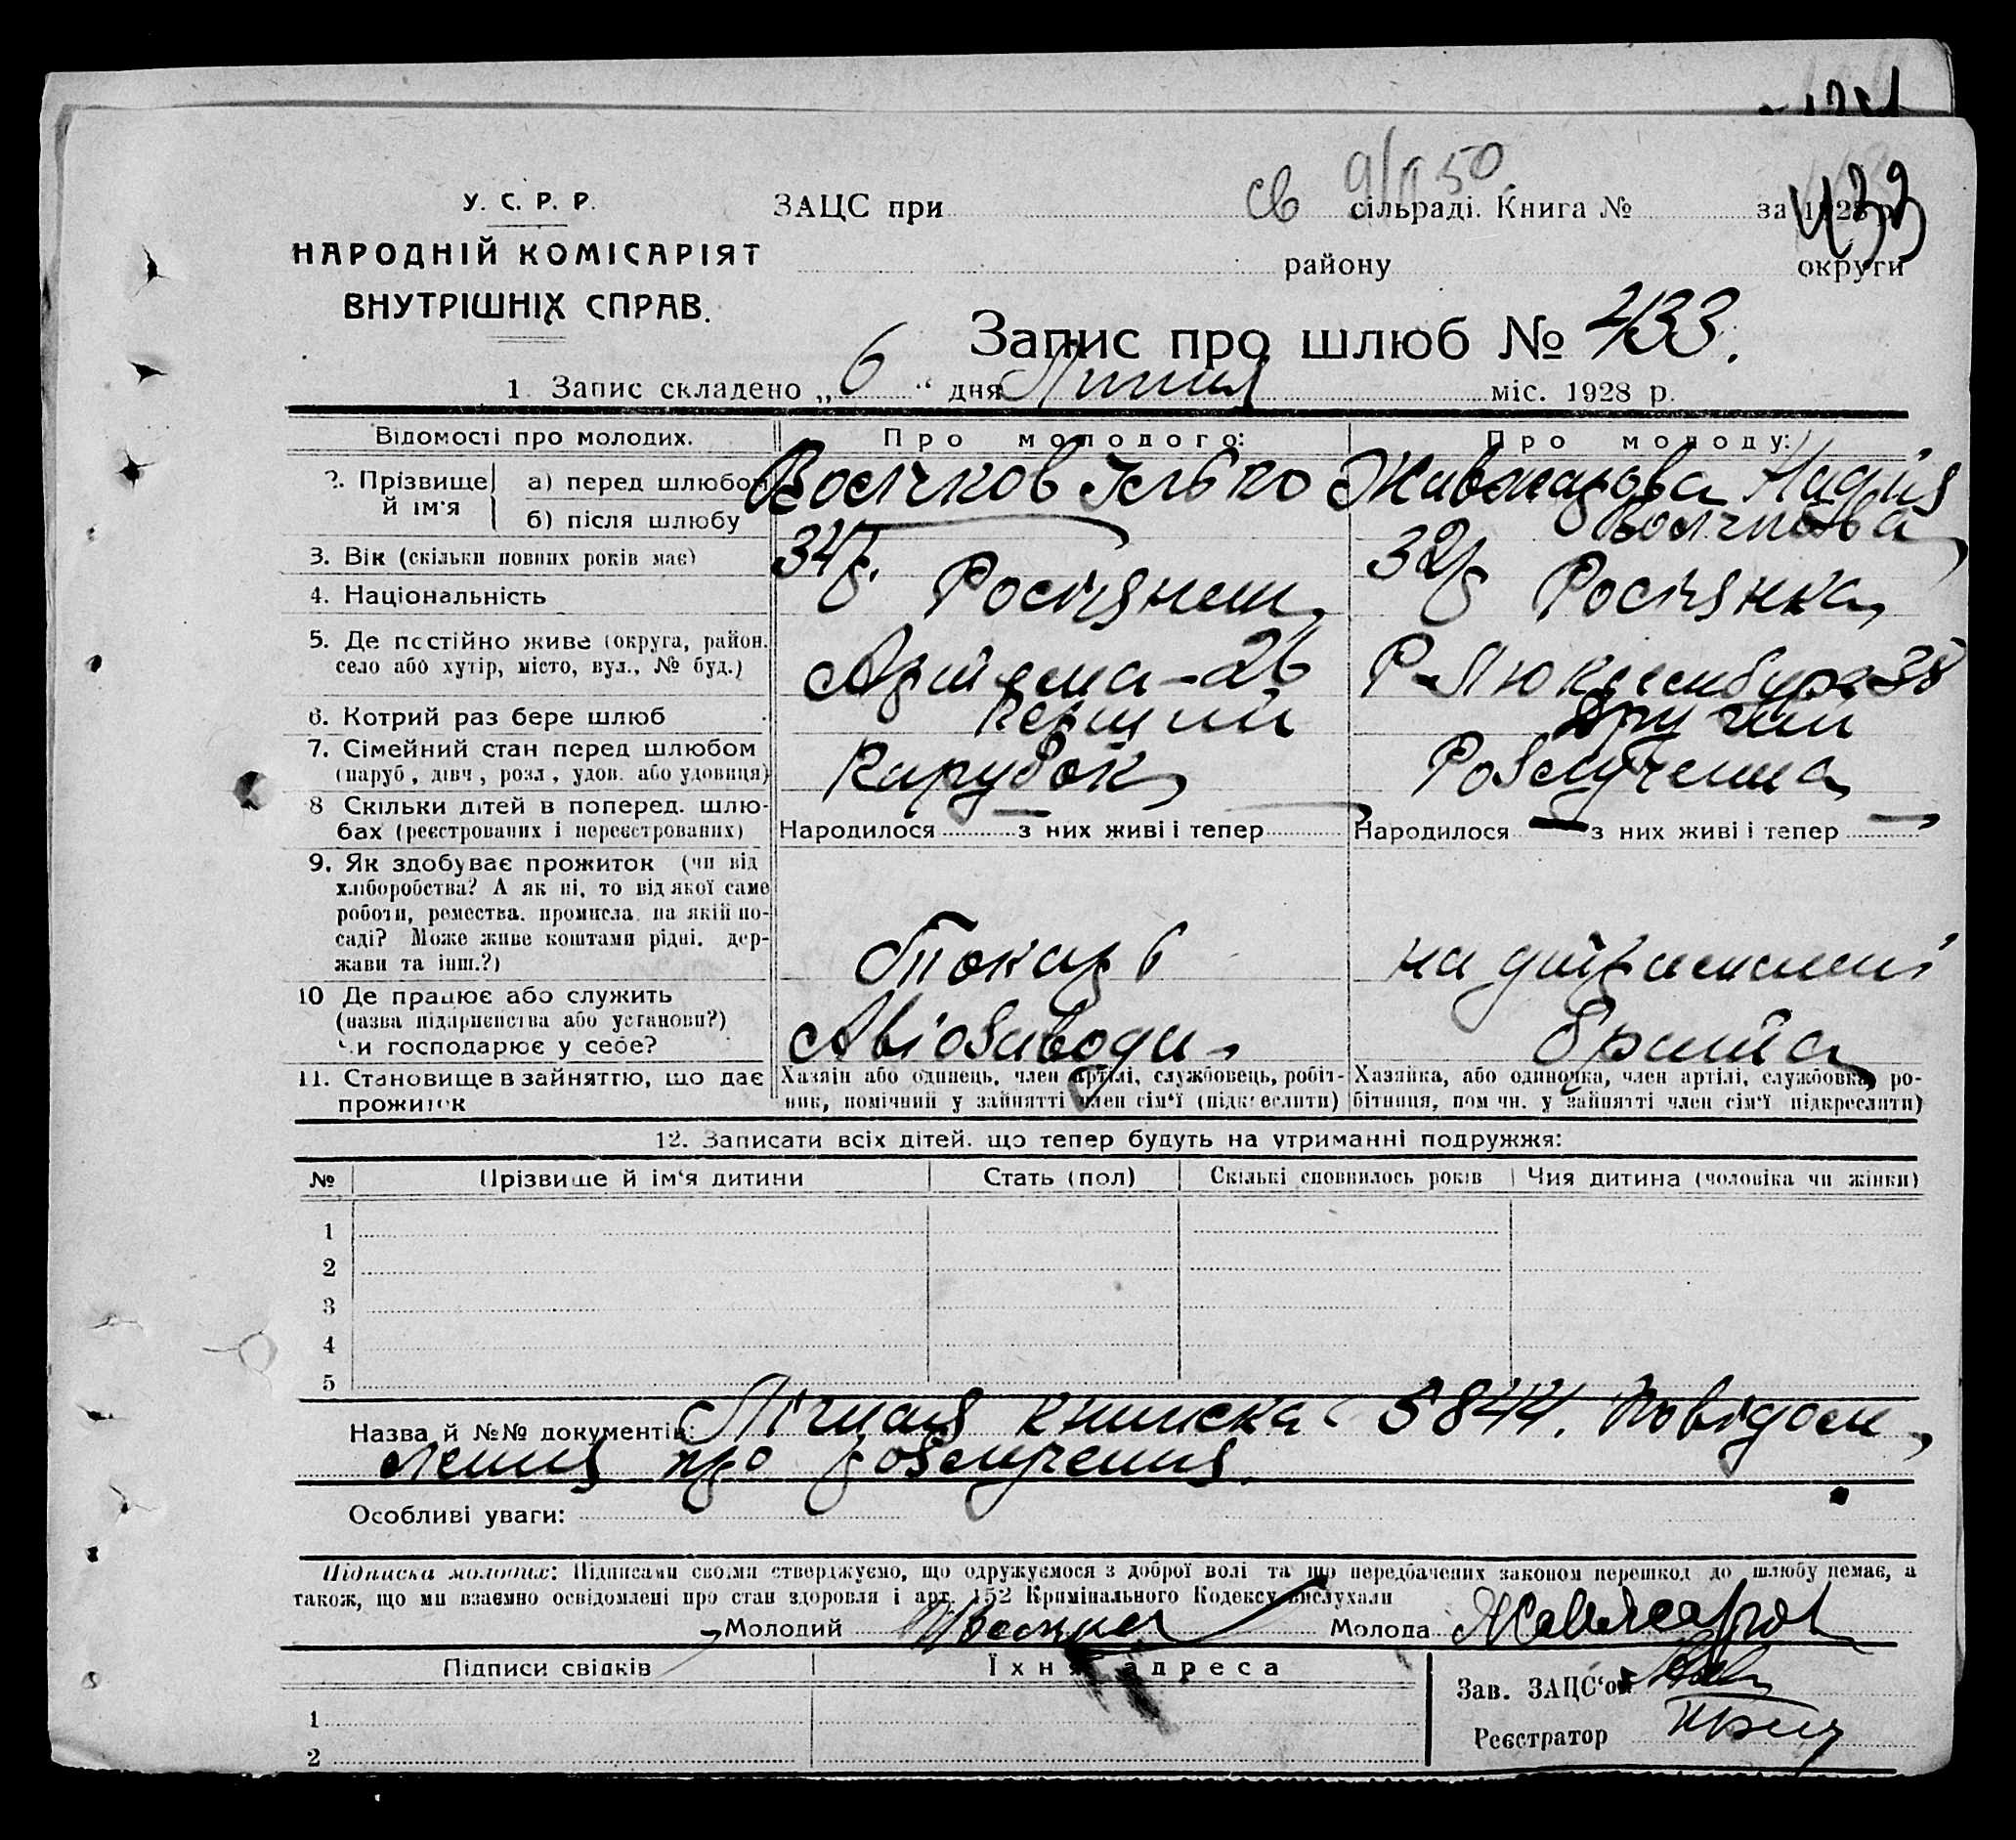 св 9/750
У. С. Р. Р.
НАРОДНІЙ КОМІСАРІЯТ
ВНУТРІШНІХ СПРАВ.
ЗАЦС при сільраді. Книга № за 1928 р.
433
району округи
Запис про шлюб № 433.
1. Запис складено „6“ дня Липня міс. 1928 р.
Відомості про молодих.
Про молодого:
Про молоду:
2. Прізвище й ім'я
а) перед шлюбом
б) після шлюбу
Ілько
Надія
3. Вік (скільки повних років має)
34 р.
32 р
4. Національність
Росіянин
Росіянка
5. Де постійно живе (округа, район.
село або хутір, місто, вул., № буд.)
Артема - 26
Р-Люксембург 38
6. Котрий раз бере шлюб
Перший
Другий
7. Сімейний стан перед шлюбом
(паруб, дівч, розл, удов. або удовиця)
Парубок
Розлучена
8 Скільки дітей в поперед. шлю-
бах (реєстрованих і нереєстрованих)
Народилося — з них живі і тепер —
Народилося — з них живі і тепер —
9. Як здобуває прожиток (чи від
хліборобства? А як ні, то від якої саме
роботи, ремества. промисла на якій по-
саді? Може живе коштами рідні. дер-
жави та інш.?)
Токар
на утриманні
10 Де працює або служить
(назва підприємства або установи?)
Чи господарює у себе?
Авіозаводи
брата
11. Становище в зайняттю, що дає
прожиток
Хазяїн або одинець, член артілі, службовець, робіт-
ник, помічний у зайнятті член сім'ї (підкреслити)
Хазяйка, або одиночка, член артілі, службовка, ро-
бітниця, пом чн. у зайнятті член сім'ї підкреслити)
12. Записати всіх дітей. що тепер будуть на утриманні подружжя:
№ Прізвище й ім'я дитини Стать (пол) Скількі сповнилось років Чия дитина (чоловіка чи жінки)
1
2
3
4
5
Назва й №№ документів: книжка 5844. Повідом
лення про розлучення.
Особливі уваги:
Підписка молодих: Підписами своїми стверджуємо, що одружуємося з доброї волі та що передбачених законом перешкод до шлюбу немає, а
також, що ми взаємно освідомлені про стан здоровля і арт. 152 Кримінального Кодексу вислухали
Молодий Молода
Підписи свідків
Їхня адреса
Зав. ЗАЦС'ом
Реєстратор
1
2